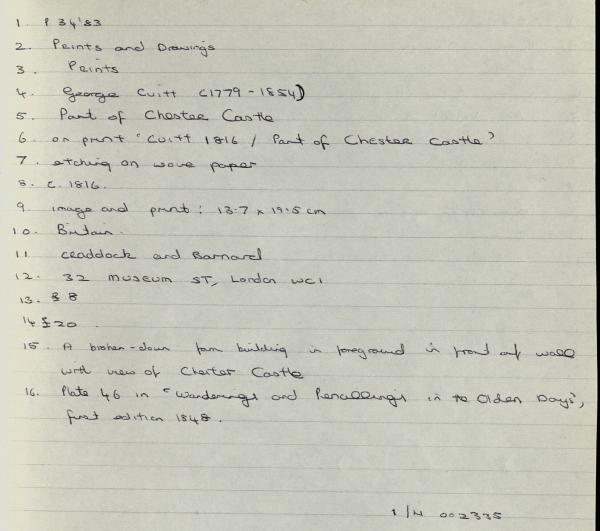 1. P 34'83
2. Prints and Drawings
3. Prints
4. George Cuitt (1779-1854)
5. Part of Chester Castle
6. on print 'Cuitt 1816 / Part of Chester Castle'
7. etching on wove paper
8. c. 1816.
9. image and print: 13.7 x 19.5 cm
10. Britain.
11. Craddock and Barnard
12. 32 Museum ST, London WC1
13. 8
14. £20
15. A broken-down farm building in foreground in front of wall
with view of Chester Castle
16. Plate 46 in 'Wanderings and Pencillings in to Olden Days',
first edition 1848.
1/N 002335